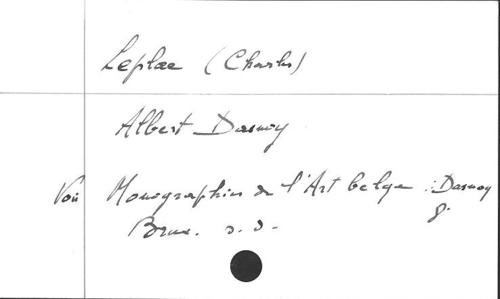 Leplae (Charles)
Albert Dasnoy
Voir Monographies de l'Art belge : Dasnoy
8°
Brux. s. d.